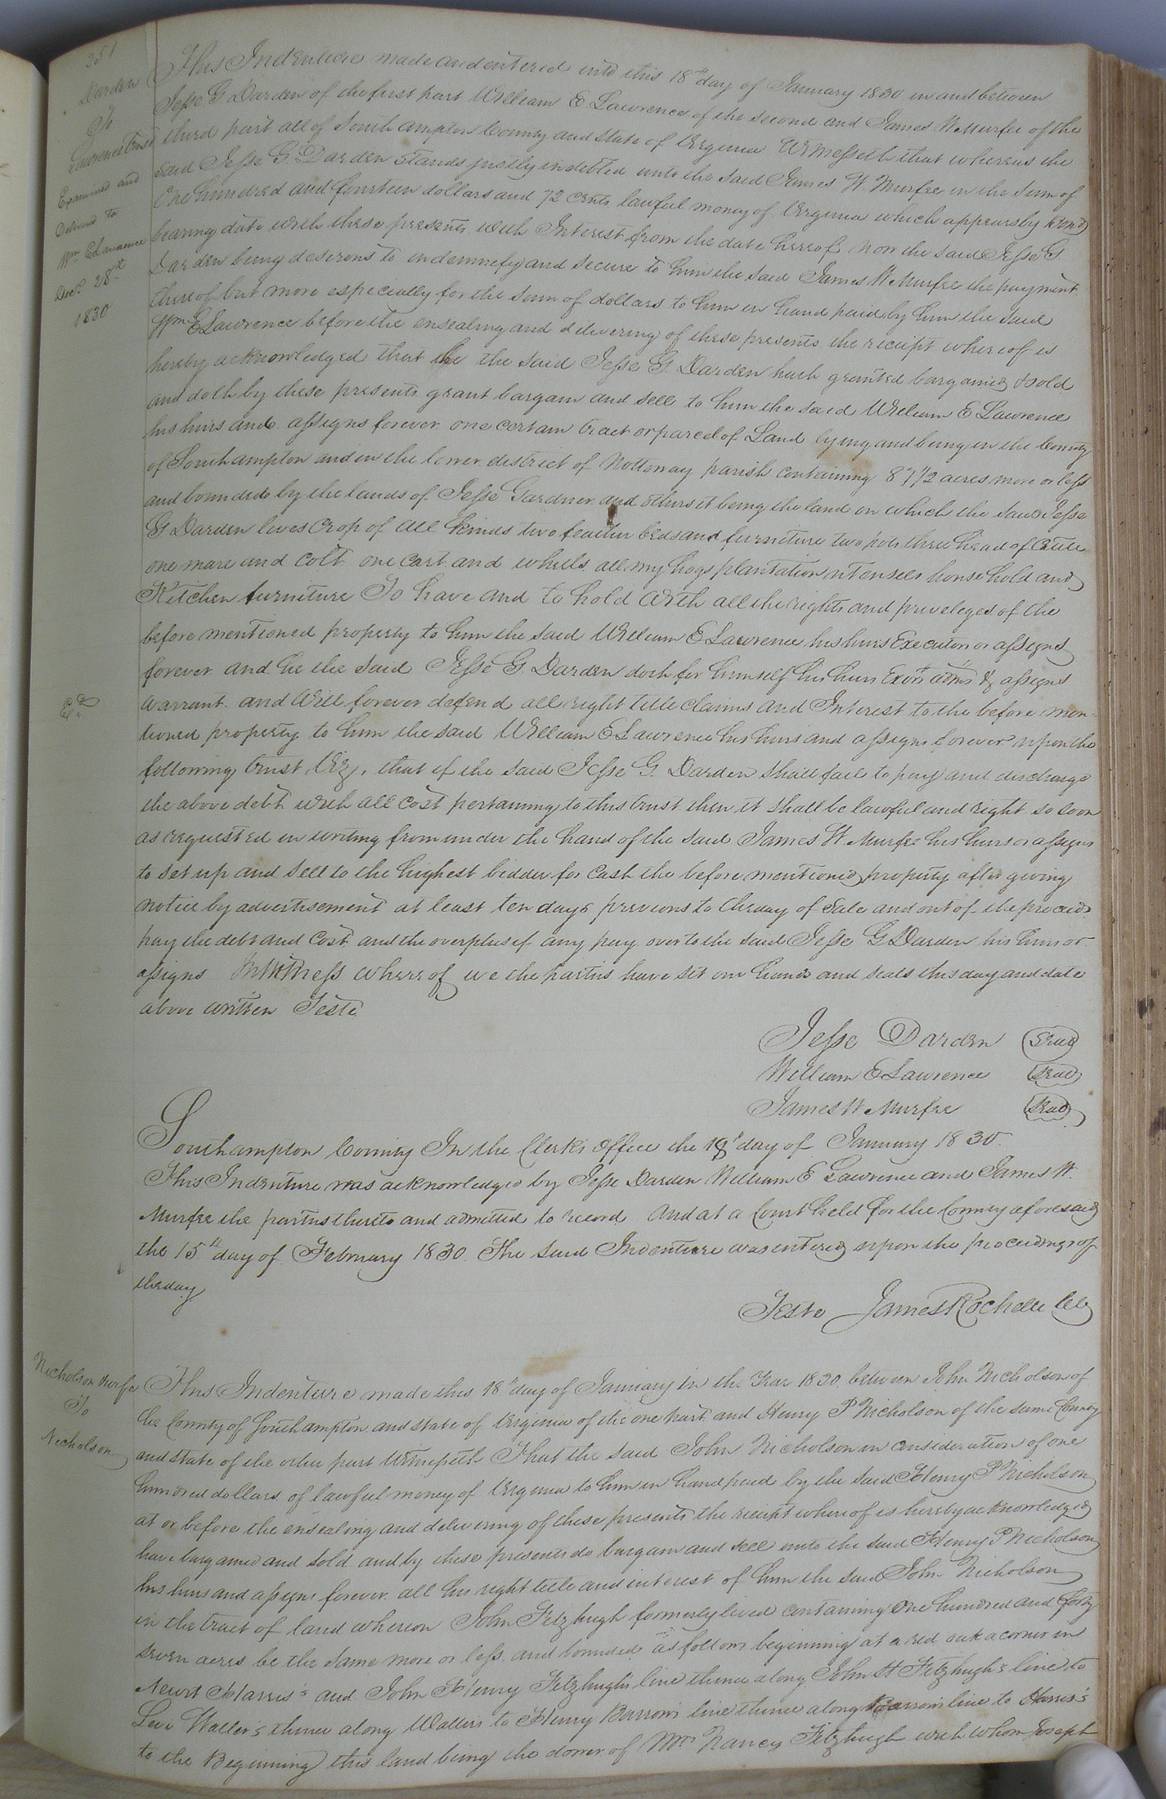 251
Darden
To
Lawrence Trust
Examined and
Delived to
Wm E Lawrence
Decr 28th
1830
This Indenture made and entered into this 18th day of January 1830 in and between
Jesse G Darden of the first part William E Lawrence of the second and James W Murfee of the
third part all of Southampton County and State of Virginia Witnesseth that whereas the
said Jesse G. Darden stands justly indebted unto the said James W. Murfee in the sum of
One hundred and fourteen dollars and 72 cents lawful money of Virginia which appears by bond
bearing date with these presents with Interest from the date hereof, now the said Jesse G
Darden being desirous to indemnefy and secure to him the said James W. Murfee the payment
thereof but more especially for the sum of dollars to him in hand paid by him the said
Wm E Lawrence before the ensealing and delivering of these presents the receipt whereof is
hereby acknowledged that he the said Jesse G Darden hath granted bargained & sold
and doth by these presents grant bargain and sell to him the said William E Lawrence
his heirs and assigns forever one certain tract or parcel of Land lying and being in the County
of Southampton and in the lower district of Nottoway parish containing 87 1/2 acres more or less
and bounded by the lands of Jesse Gardner and others it being the land on which the said Jesse
G Darden lives Crop of all kinds two feather beds and furniture two pots three head of Cattle
one mare and colt one cart and wheels all my hogs plantation utensels house hold and
Kitchen furniture To have and to hold With all the rights and priveleges of the
before mentioned property to him the said William E Lawrence his heirs Executors or assigns
forever and he the said Jesse G Darden doth for himself his heirs Exors adms & assigns
warrant and Will forever defend all right title claims and Interest to the before men-
tioned property to him the said William E Lawrence his heirs and assigns forever upon the
following trust, Viz, that if the said Jesse G. Darden shall fail to pay and discharge
the above debt with all cost pertaining to this trust then it shall be lawful and right so soon
as requested in writing from under the hand of the said James W. Murfee his heirs or assigns
to set up and sell to the highest bidder for cash the before mentioned property after giving
notice by advertisement at least ten days previous to the day of Sale and out of the proceeds
pay the debt and Cost and the overplus if any pay over to the said Jesse G Darden his heirs or
assigns In Witness whereof we the parties have set our hands and seals this day and date
above written Teste
Jesse Darden Seal
William E Lawrence Seal
James W Murfee Seal
Southampton County In the Clerks office the 18th day of January 1830.
This Indenture was acknowledged by Jesse Darden William E Lawrence and James W.
Murfee the parties thereto and admitted to record And at a Court held for the County aforesaid
the 15th day of February 1830. The said Indenture was entered upon the proceedings of
the day
Teste James Rochelle Clk
Nicholson
To
Nicholson
This Indenture made this 18th day of January in the Year 1830 between John Nicholson of
the County of Southampton and state of Virginia of the one part and Henry P Nicholson of the same County
and state of the other part Witnesseth That the said John Nicholson in consideration of one
hundred dollars of lawful money of Virginia to him in hand paid by the said Henry P Nicholson
at or before the ensealing and delivering of these presents the receipt whereof is hereby acknowledged
have bargained and sold and by these presents do bargain and sell unto the said Henry P Nicholson
his heirs and assigns forever all his right title and interest of him the said John Nicholson
in the tract of land whereon John Fitzhugh formerly lived containing One hundred and forty
seven acres be the same more or less and bounded as follows beginning at a red oak a corner in
Newit Harris's and John Henry Fitzhugh's line thence along John H Fitzhugh's line to
Levi Waller's thence along Wallers to Henry Barrows line thence along Barrows line to Harris's
to the Beginning this land being the dower of Mrs Nancy Fitzhugh with whom Joseph